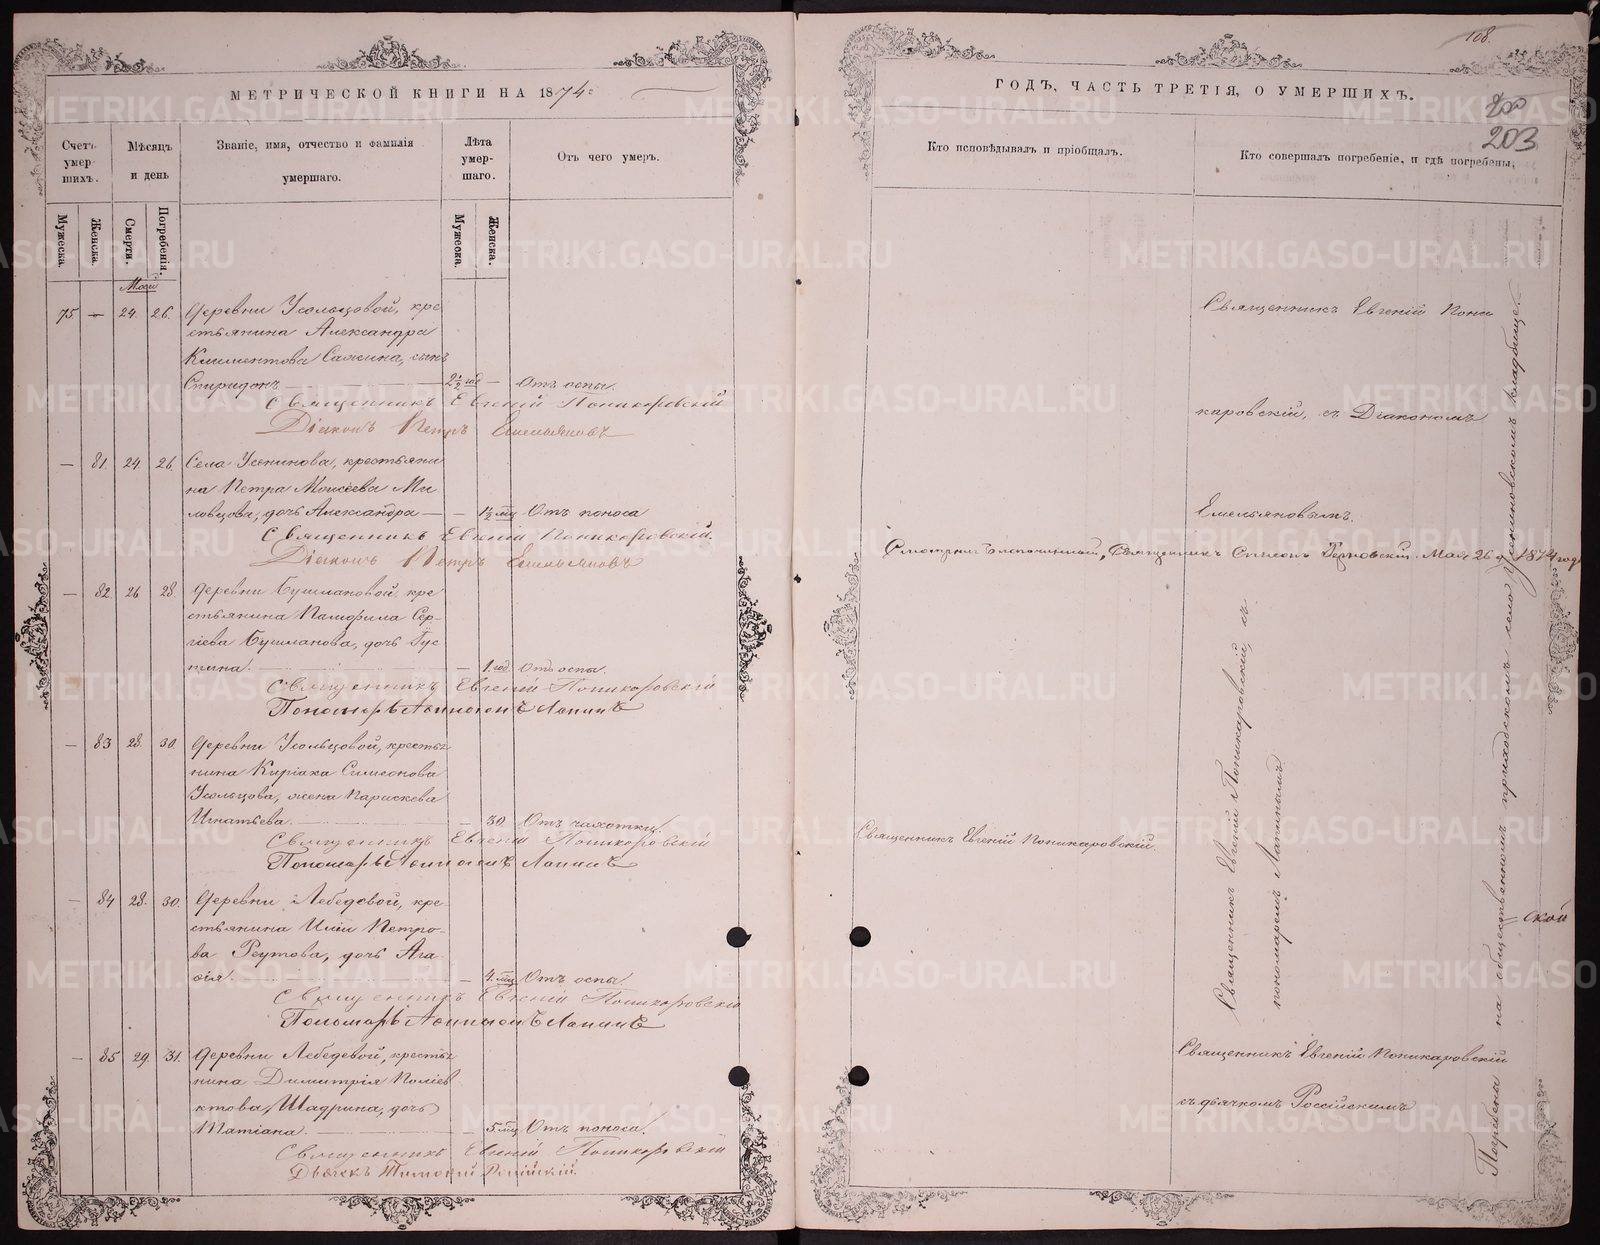 МЕТРИЧЕСКОЙ КНИГИ НА 1874
Счетъ умершихъ.
Мѣсяцъ и день
Званіе, имя, отчество и фамилія умершаго.
Лѣта умершаго.
Отъ чего умеръ.
Мужеска.
Женска.
Смерти.
Погребенія.
Мужеска.
Женска.
Май
75 — 24. 26. Деревни Усольцовой, кре
стьянина Александра
Климентова Сажина, сынъ
Спиридонъ — 2 1/2 год — Отъ оспы.
Священникъ Евгеній Поникаровскій
Діаконъ Петръ Емельяновъ
— 81. 24. 26. Села Усенинова, крестьяни
на Петра Моисеева Ми
ловцова, дочь Александра — — 1 1/2 мц Отъ поноса
Священникъ Евгеній Поникаровскій.
Діаконъ Петръ Емельяновъ
— 82 26 28. Деревни Бушлановой, кре
стьянина Памфила Сер-
гіева Бушланова, дочь Гус
тина. — 1. год Отъ оспы.
Священникъ Евгеній Поникаровскій
Пономарь Лапинъ
— 83 28. 30. Деревни Усольцовой, крестья
нина Киріака Симеонова
Усольцова, жена Параскева
Игнатьева. — 30 Отъ чахотки.
Священникъ Евгеній Поникаровскій
Пономарь Лапинъ
— 84 28. 30. Деревни Лебедевой, кре
стьянина Иліи Петро-
ва Реутова, дочь Ага
ѳія. — 4. мц Отъ оспы.
Священникъ Евгеній Поникаровскій
Пономарь Лапинъ
— 85 29. 31. Деревни Лебедевой, крестья
нина Димитрія Поліев
ктова Шадрина, дочь
Татіана. — 5. мц Отъ поноса.
Священникъ Евгеній Поникаровскій
Дьячекъ Россійскій.
108.
ГОДЪ, ЧАСТЬ ТРЕТІЯ, О УМЕРШИХЪ.
203
Кто исповѣдывалъ и пріобщалъ.
Кто совершалъ погребеніе, и гдѣ погребены.
Священникъ Евгеній Пони
каровскій, съ Діакономъ
Емельяновымъ.
Благочинный, Священникъ Мая 26 д. 1874 года
Священникъ Евгеній Поникаровскій.
Священникъ Евгеній Поникаровскій, съ
пономаремъ Лапинымъ
Священникъ Евгеній Поникаровскій
съ дьячкомъ Россійскимъ
Погребены на общественномъ приходскомъ села Усениновскомъ кладбище.
= ской
METRIKI.GASO-URAL.RU